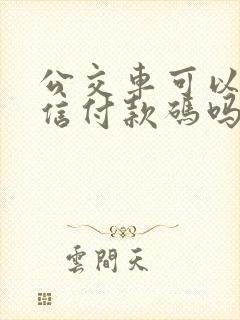 公交車可以
信付款碼嗎
雲間天